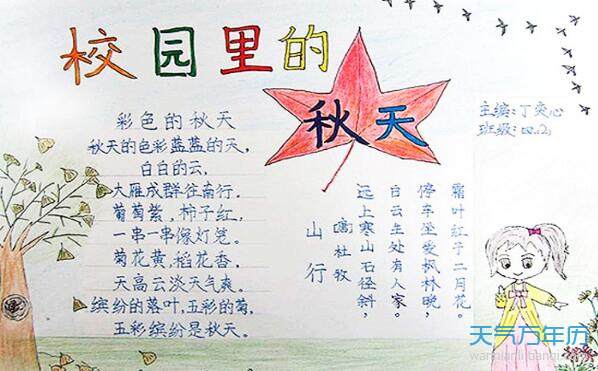 校园里的
秋天
主编:丁奕心
班级:四.(2)
彩色的秋天
秋天的色彩蓝蓝的天,
白白的云,
大雁成群往南行。
葡萄紫,柿子红,
一串一串像灯笼。
菊花黄,稻花香,
天高云淡天气爽。
缤纷的落叶,五彩的菊,
五彩缤纷是秋天。
山行
唐杜牧
远上寒山石径斜,
白云生处有人家。
停车坐爱枫林晚,
霜叶红于二月花。
天气万年历
wannianli.tianqi.com